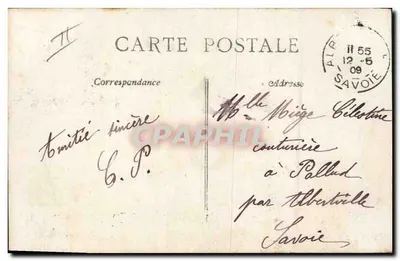 II
CARTE POSTALE
Correspondance
Adresse
11 55
12 -5
09
SAVOIE
Amitié sincère
C. P.
Mlle Miège Célestine
couturière
à Pallud
par Albertville
Savoie
CPAPHIL